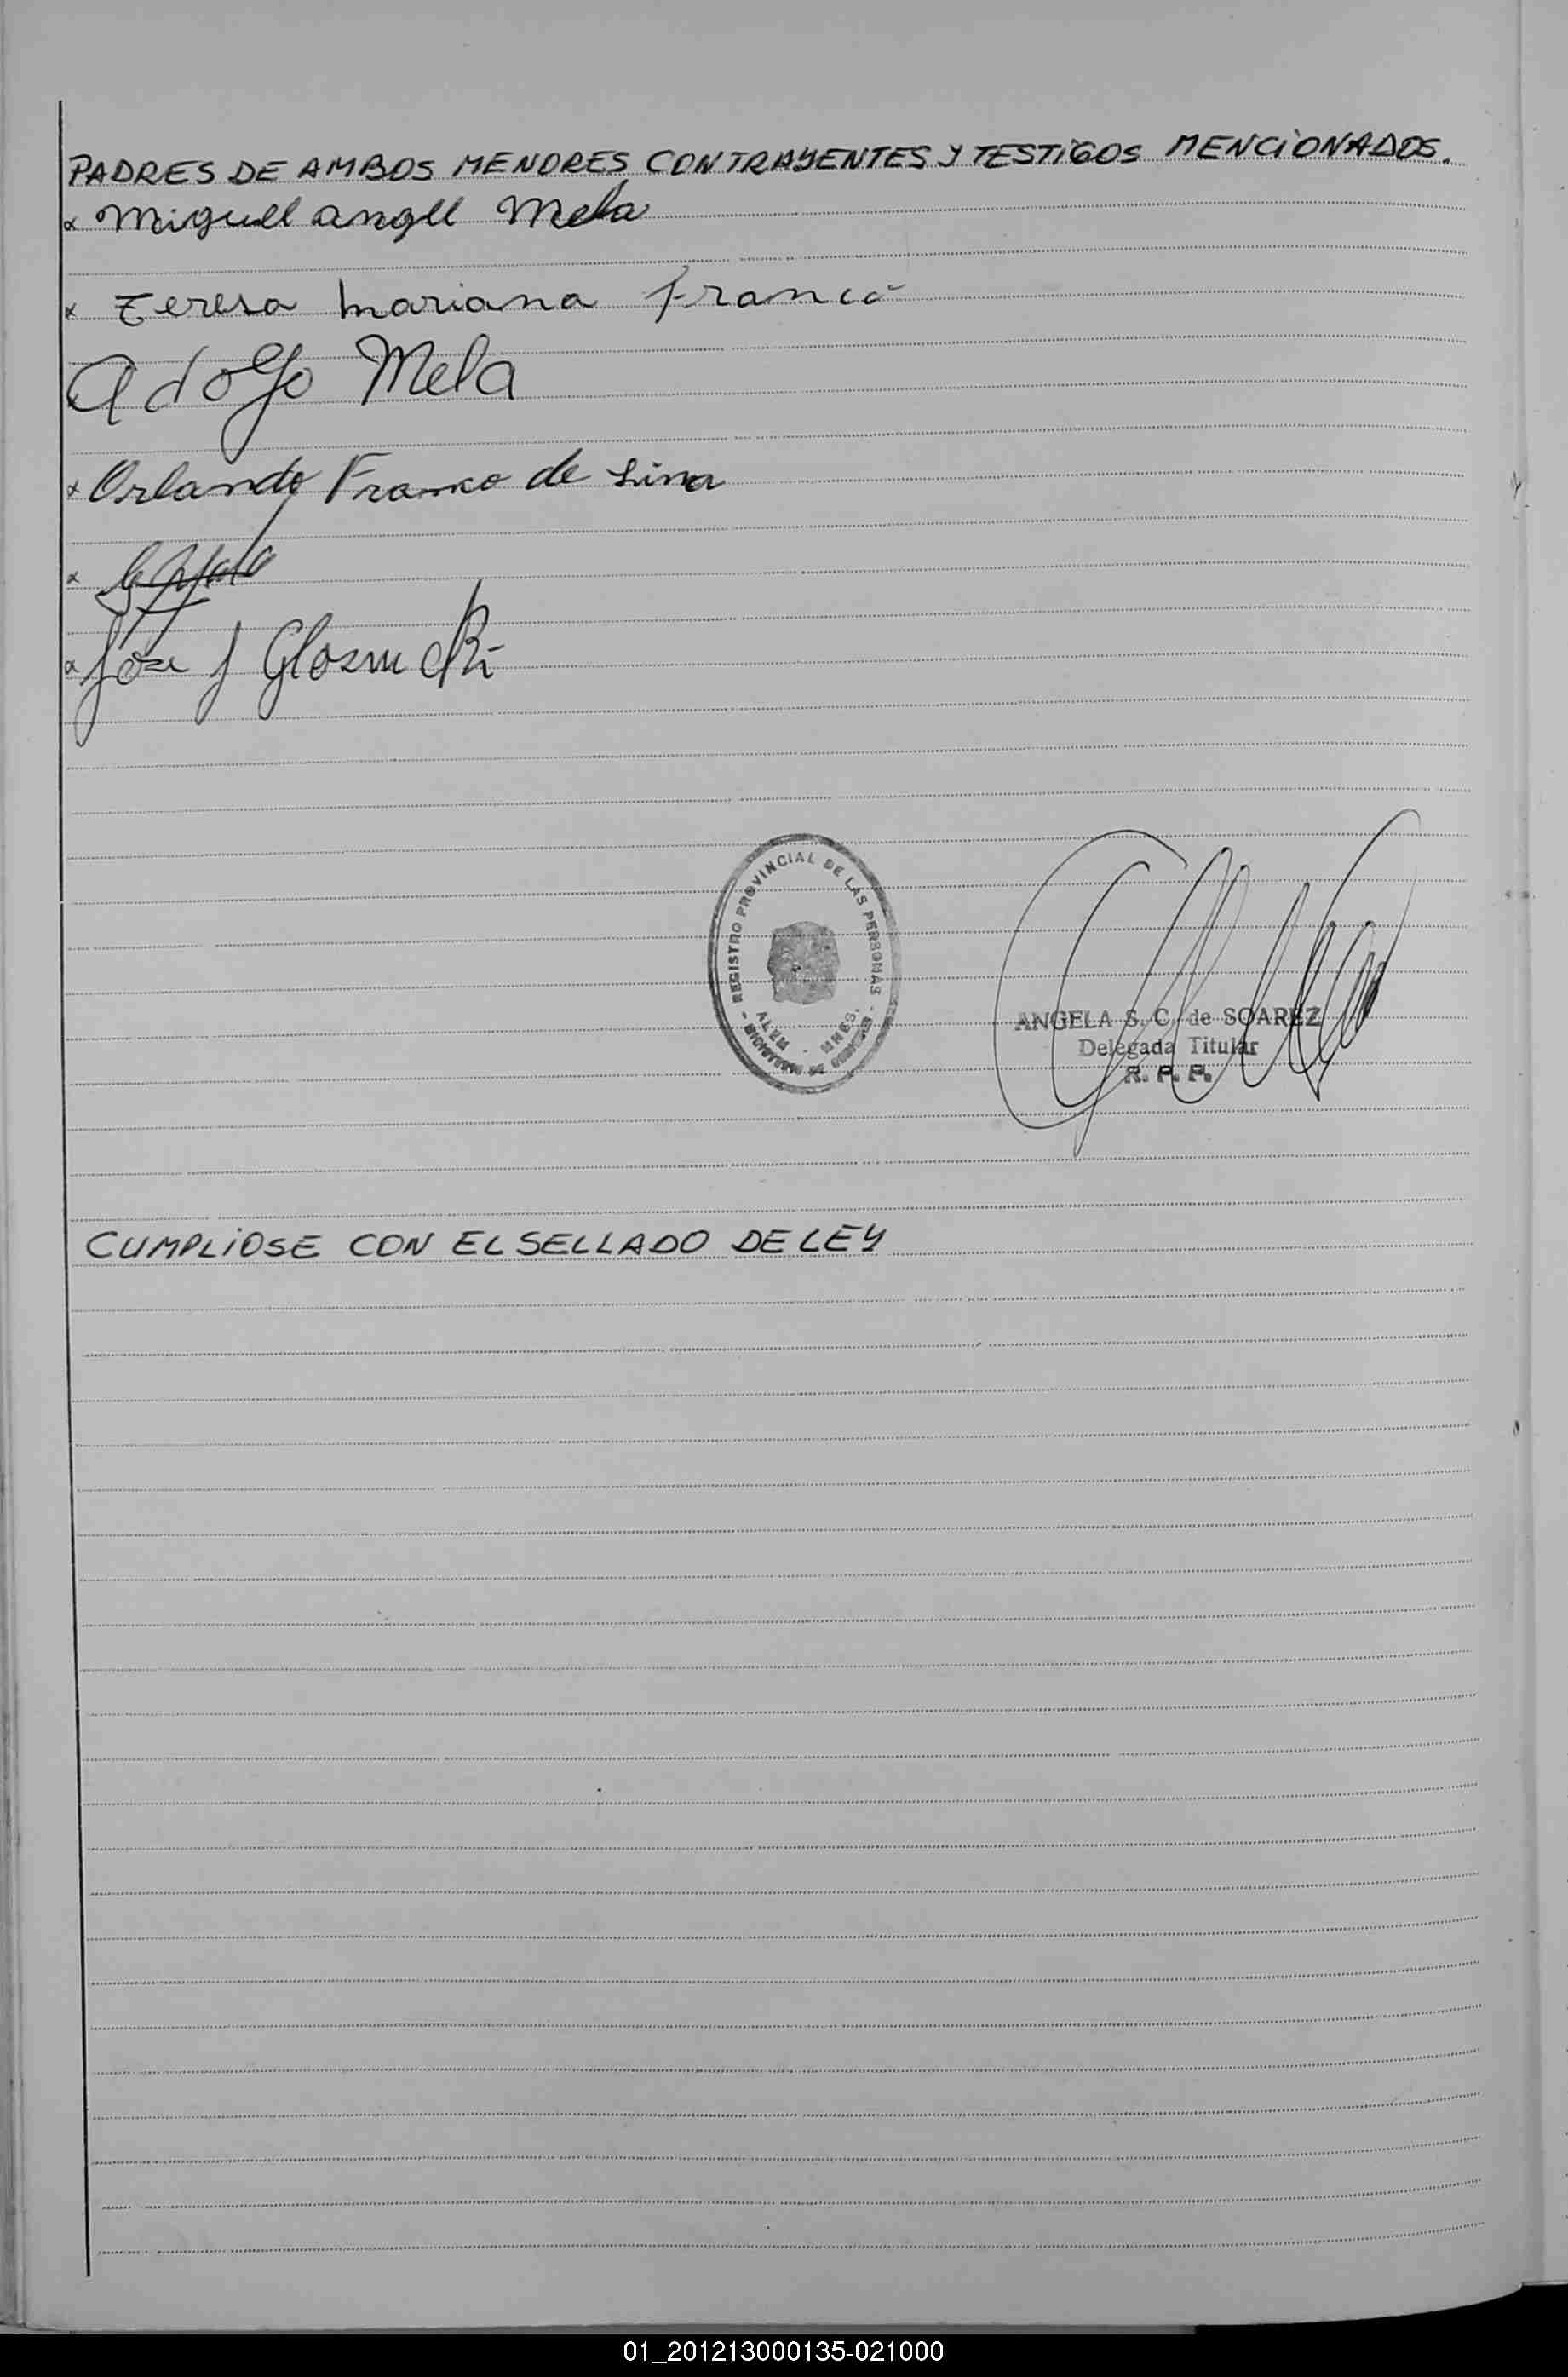 PADRES DE AMBOS MENORES CONTRAYENTES Y TESTiGOS MENCiONADOS.
x Miguel angel Mela
x Teresa Mariana Franco
Adolfo Mela
x Orlando Franco de Lima
x
x Jose J
- REGISTRO PROVINCIAL DE LAS PERSONAS -
ALEM - MNES.
MINISTERIO DE GOBIERNO
ANGELA S. C. de SOAREZ
Delegada Titular
R. P. P.
CUMPLiOSE CON EL SELLADO DE LEY
01_201213000135-021000